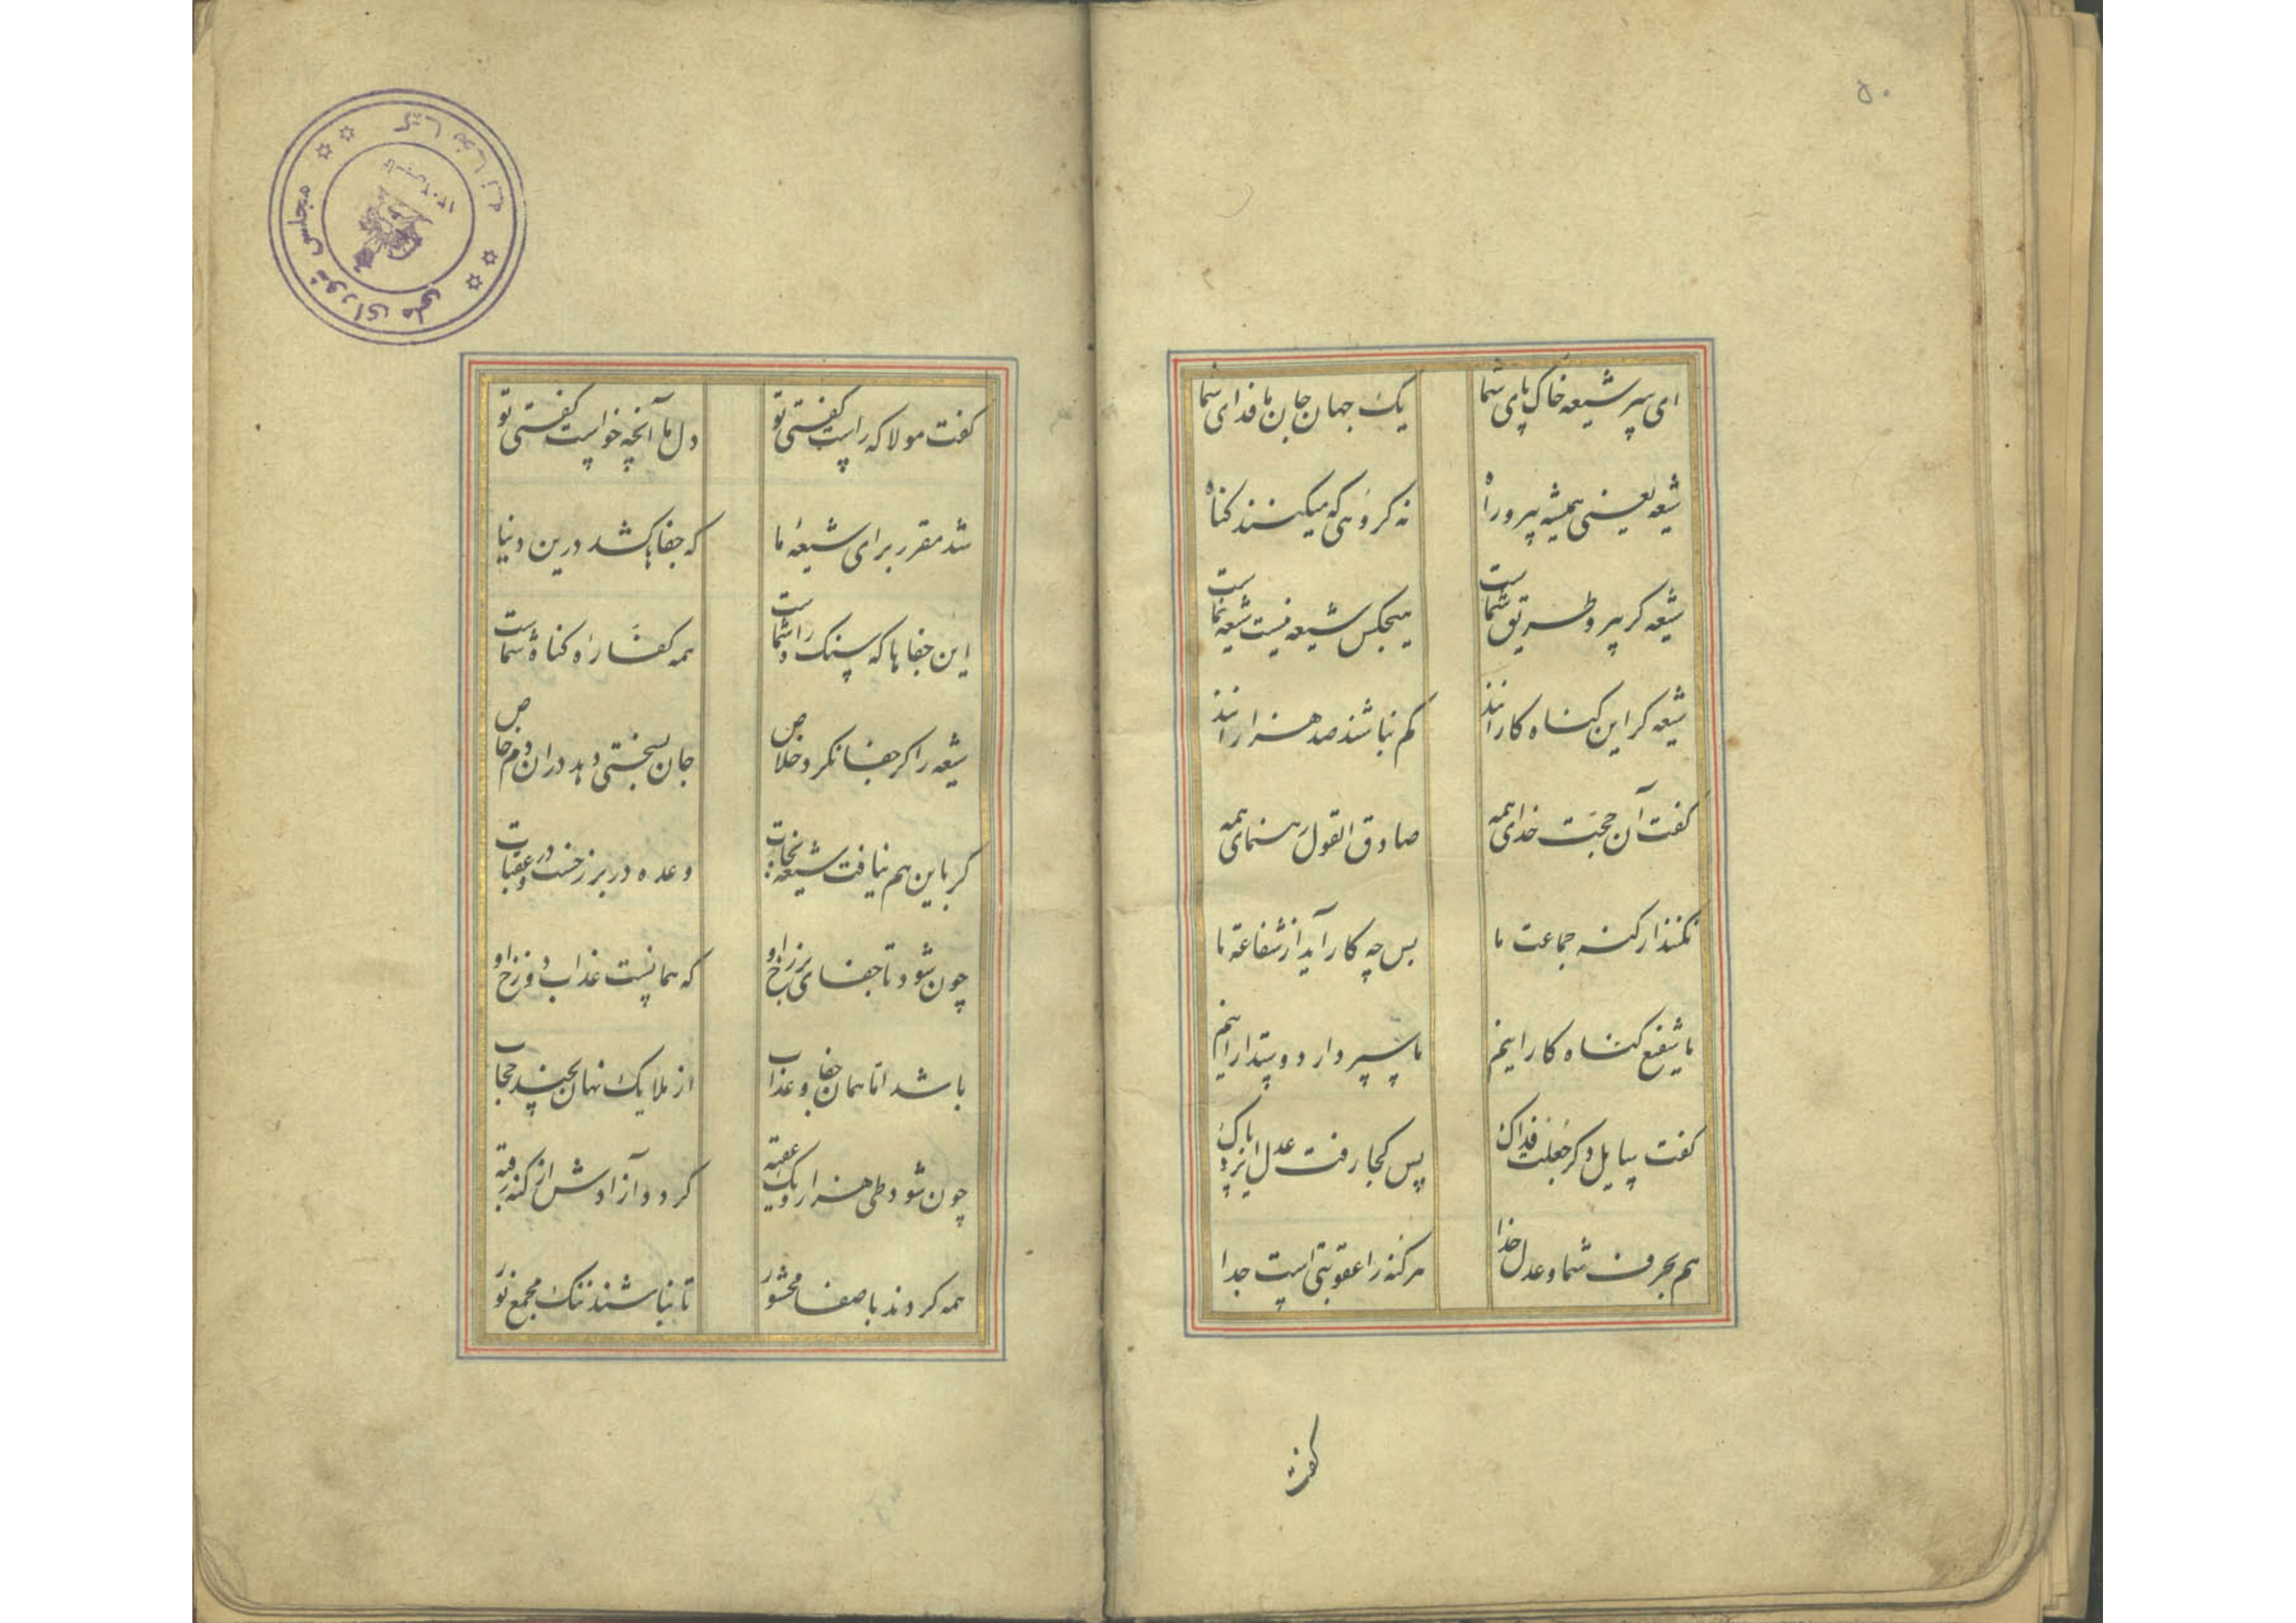 ۵۰
ای سر شیعه خاک پای شما یک جهان جان ما فدای شما
شیعه یعنی همیشه پیرو راه نه کروهی که میکنند کناه
شیعه کر پیرو طریق شماست هیچکس شیعه نیست شیعه نماست
شیعه کر این کناه کارانند کم نباشند صد هزارانند
کفت آن حجت خدای همه صادق القول رهنمای همه
نکنند ار کنه جماعت ما پس چه کار آید از شفاعة ما
ما شفیع کناه کارانیم ما سپردار دوستدارانیم
کفت سایل دکر جعلت فداک پس کجا رفت عدل ایزد پاک
هم بحرف شما و عدل خدا هر کنه را عقوبتی است جدا
کفت
کفت مولا که راست کفتی تو دل ما آنچه خواست کفتی تو
شد مقرر برای شیعهٔ ما که جفاها کشد درین دنیا
این جفاها که سنک راه شماست همه کفارهٔ کناه شماست
شیعه را کر جفا نکرد خلاص جان بسختی دهد در ان دم خاص
کر باین هم نیافت شیعه نجات وعده در برزخست و در عقبات
چون شود تا جفای برزخ او که همانست عذاب دوزخ او
باشد اما همان جفا و عذاب از ملایک نهان بچند حجاب
چون شود طی هزار و یک عقبه کردد آزادش از کنه رقبه
همه کردند با صفا محشور تا نباشند ننک مجمع نور
کتابخانه
مجلس شورای ملی